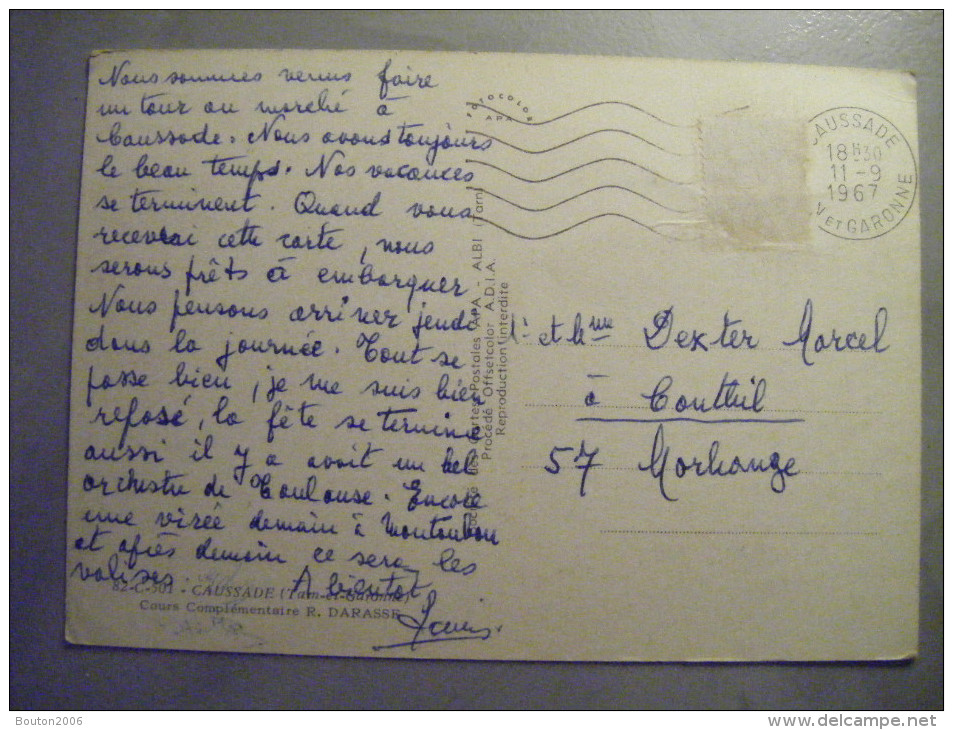 Nous sommes venus faire
un tour au marché à
Caussade. Nous avons toujours
le beau temps. Nos vacances
se terminent. Quand vous
recevrai cette carte, nous
serons prêts à embarquer
Nous pensons arriver jeudi
dans la journée. Tout se
passe bien, je me suis bien
reposé, la fête se termine
aussi il y a avait un bel
orchestre de Toulouse. Encore
une virée demain à Montauban
et après demain ce sera les
valises. A bientôt
82-C-301 - CAUSSADE (Tarn-et-Garonne)
Cours Complémentaire R. DARASSE
FOTOCOLOR
APA
Cartes Postales APA - ALBI (Tarn)
Procédé Offsetcolor A.D.I.A.
Reproduction interdite
CAUSSADE
18 H30
11-9
1967
N ET GARONNE
et Mme Dexter Marcel
à Conthil
57 Morhange
Bouton2006
http://www.delcampe.net